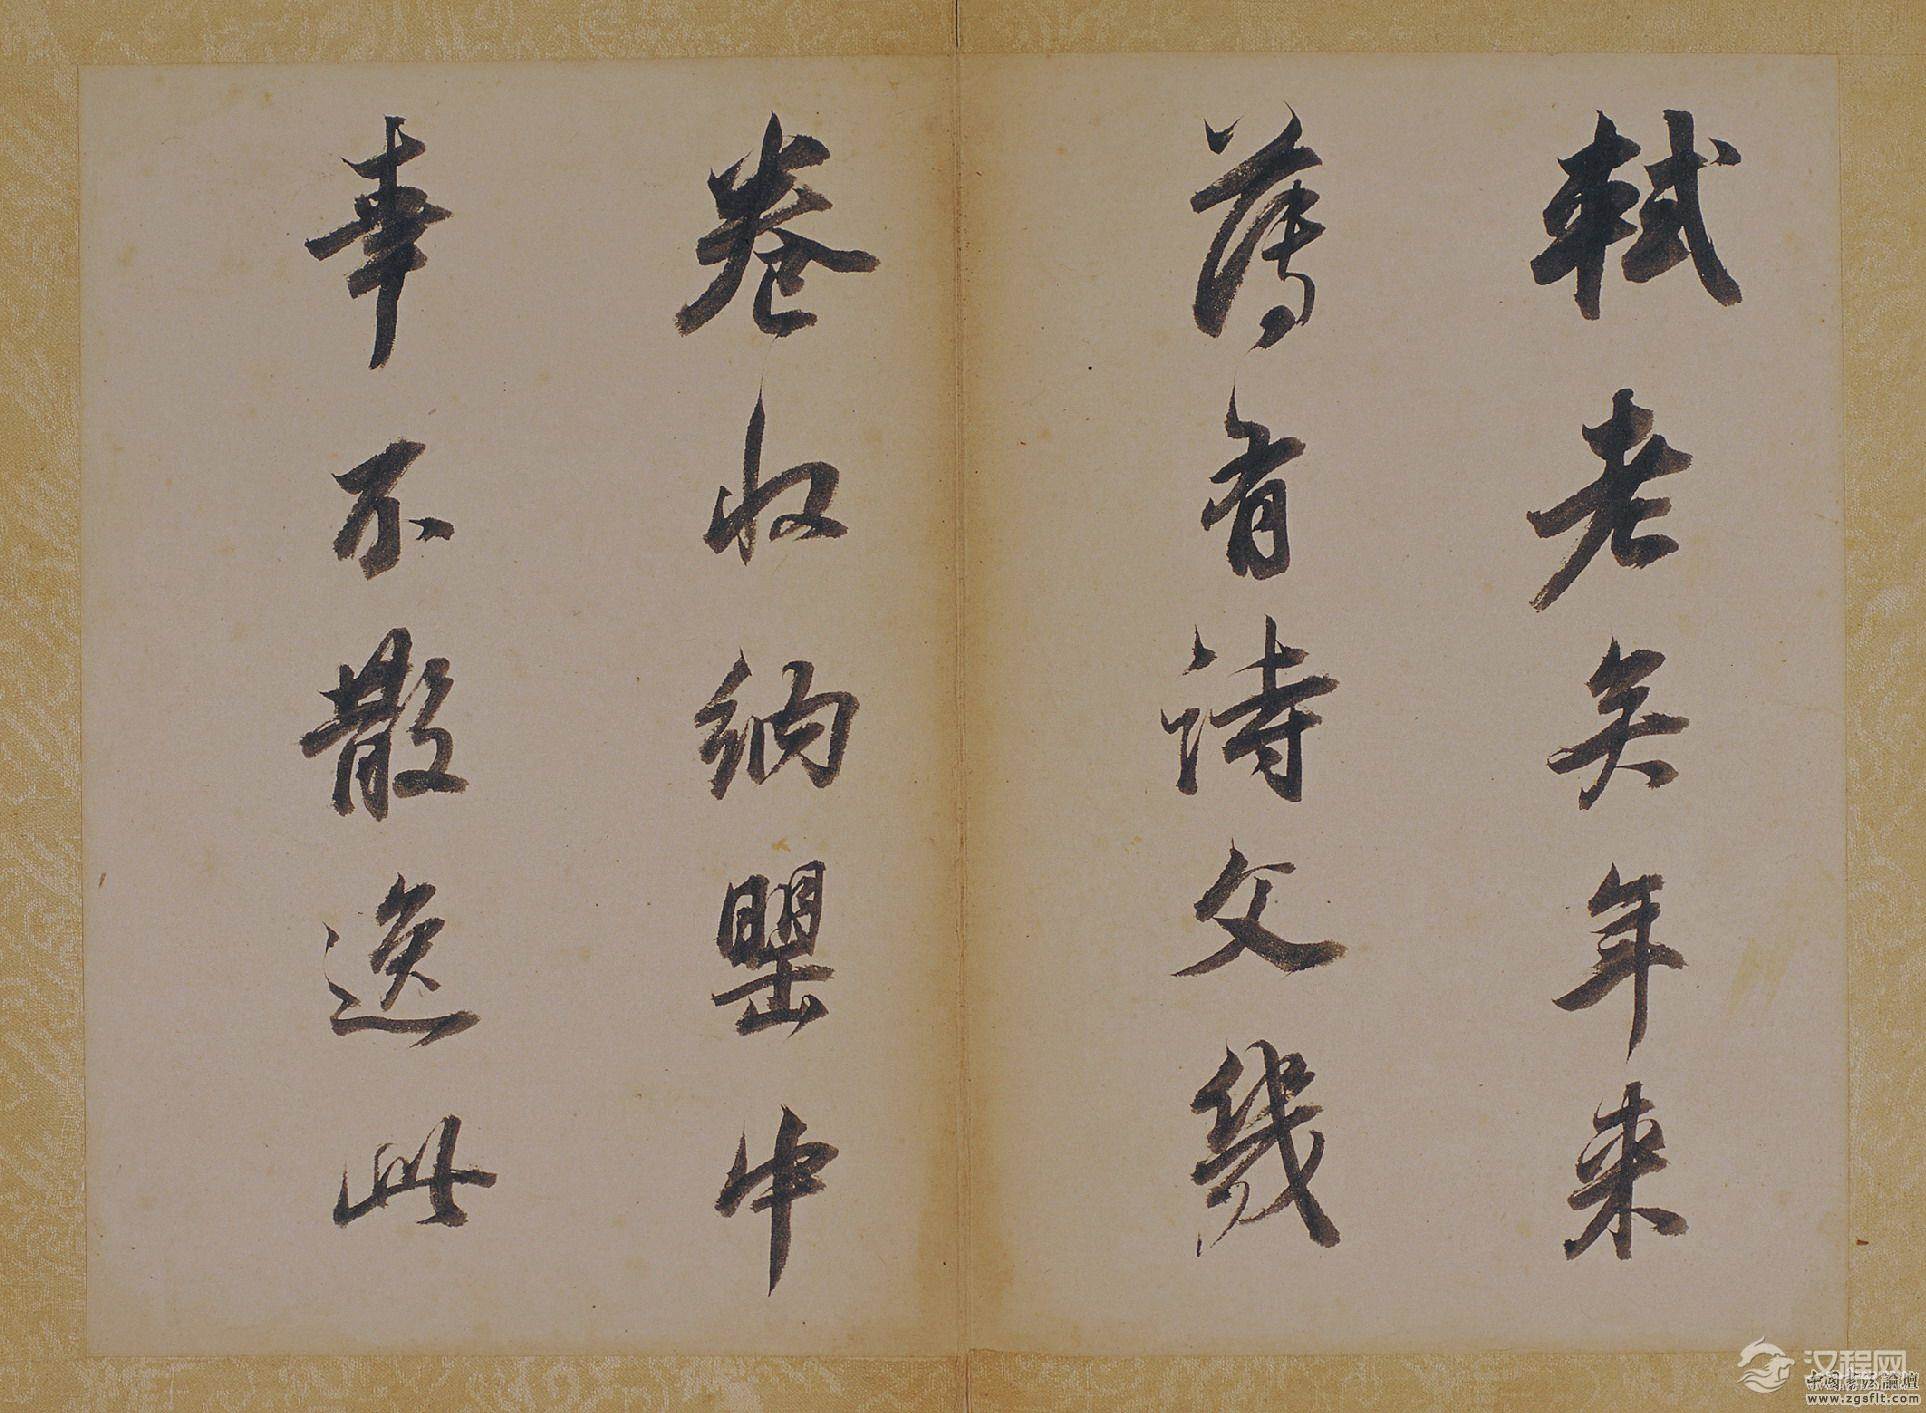 軾老矣年来
薄有詩文幾
卷收納罌中
幸不散逸此
汉程网
中國書法論壇
www.zgsflt.com